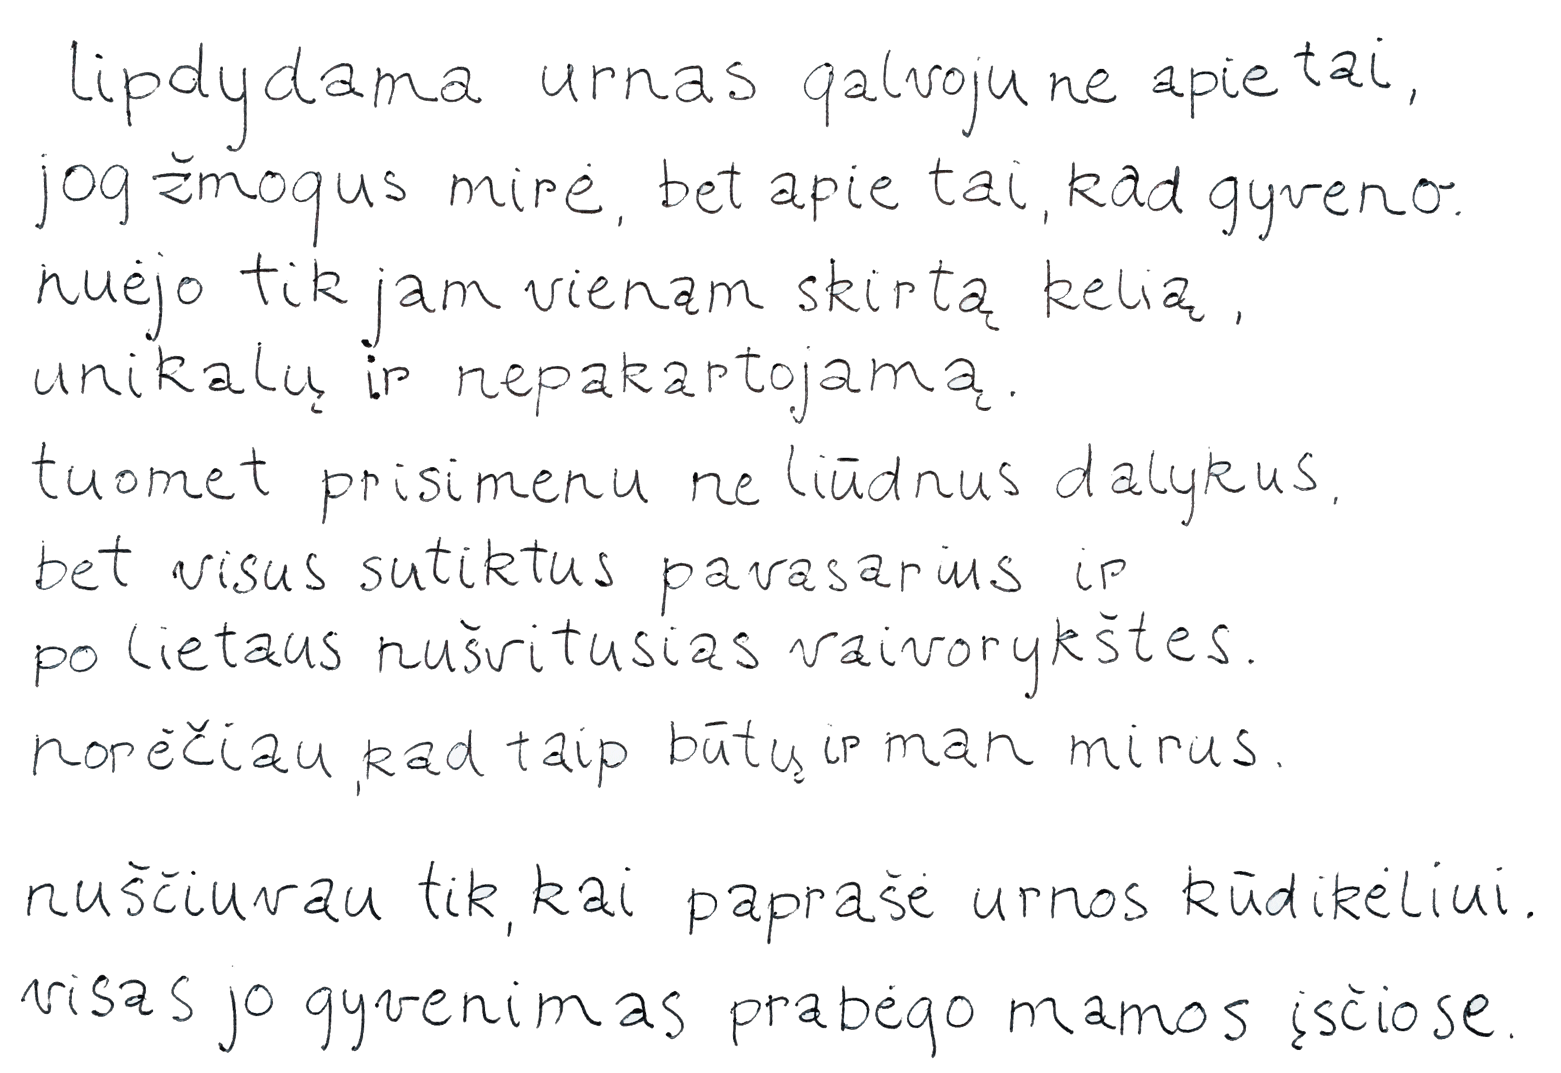 lipdydama urnas galvoju ne apie tai,
jog žmogus mirė, bet apie tai, kad gyveno.
nuėjo tik jam vienam skirtą kelią,
unikalų ir nepakartojamą.
tuomet prisimenu ne liūdnus dalykus,
bet visus sutiktus pavasarius ir
po lietaus nušvitusias vaivorykštes.
norėčiau, kad taip būtų ir man mirus.
nuščiuvau tik, kai paprašė urnos kūdikėliui.
visas jo gyvenimas prabėgo mamos įsčiose.